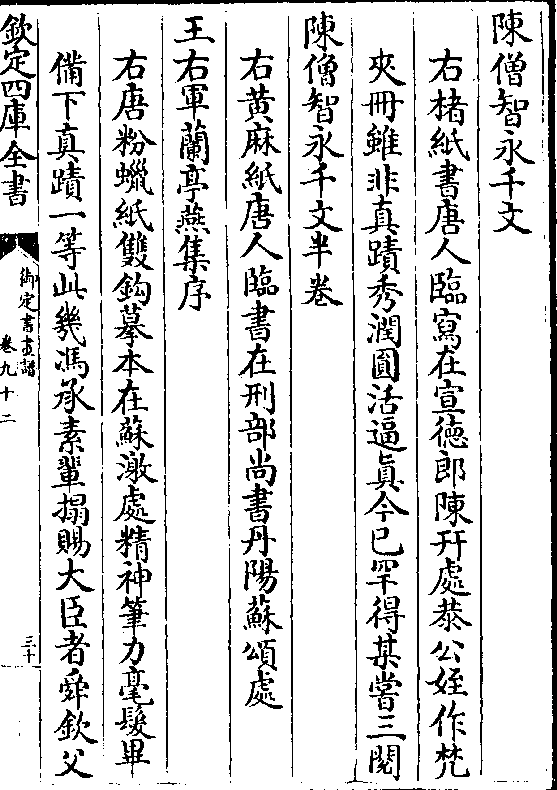 陳僧智永千文
右楮紙書唐人臨寫在宣徳郎陳幵處恭公姪作梵
夾冊雖非真蹟秀潤圓活逼真今已罕得某嘗三閱
陳僧智永千文半卷
右黄麻紙唐人臨書在刑部尚書丹陽蘇頌處
王右軍蘭亭燕集序
右唐粉蠟紙雙鈎摹本在蘇激處精神筆力毫髮畢
備下真蹟一等此幾馮承素輩搨賜大臣者舜欽父
欽定四庫全書
御定書畫譜
卷九十二
三十